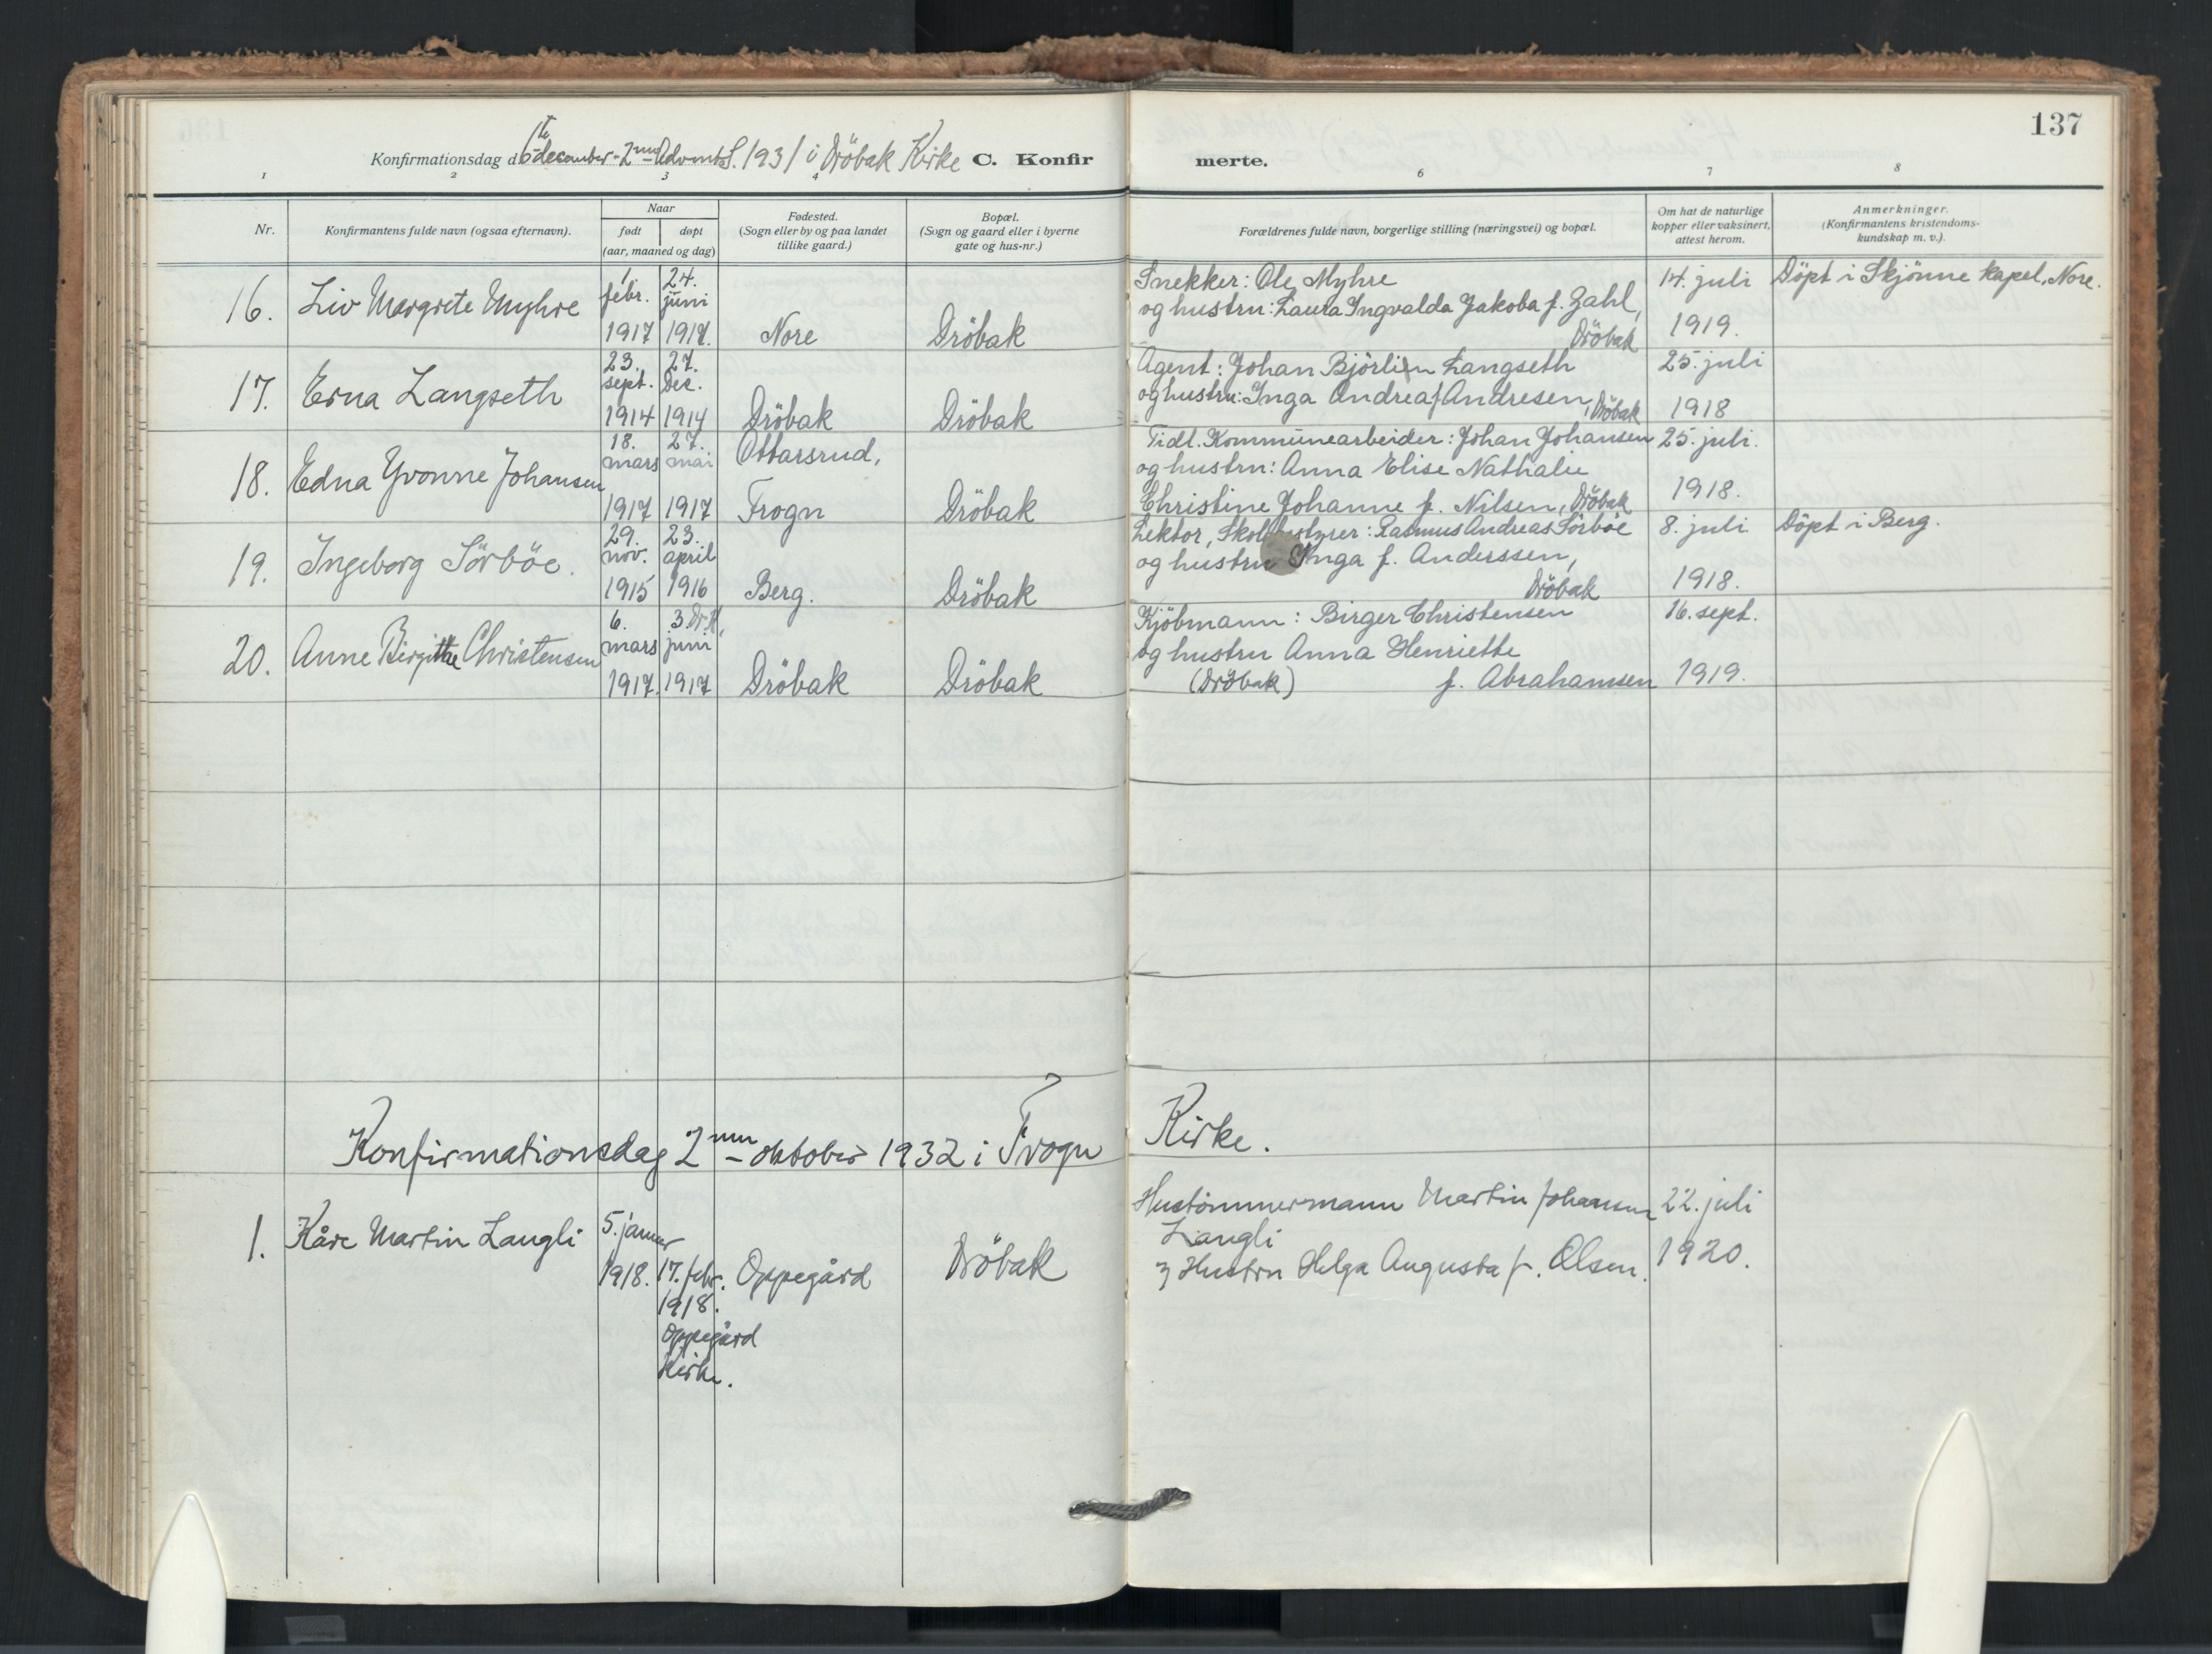 137
Konfirmationsdag d. 6te december - 2nn Advents S. 1931 i Dröbak Kirke C. Konfir merte.
1 2 3 4 6 7 8
Nr.
Konfirmantens fulde navn (ogsaa efternavn).
Naar
født
døpt
(aar, maaned og dag)
Fødested.
(Sogn eller by og paa landet
tillike gaard.)
Bopæl.
(Sogn og gaard eller i byerne
gate og hus-nr.)
Forældrenes fulde navn, borgerlige stilling (næringsvei) og bopæl.
Om hat de naturlige
kopper eller vaksinert,
attest herom.
Anmerkninger.
(Konfirmantens kristendoms-
kundskap m. v.).
16. Liv Margrete Myhre
1. febr. 1917
24. juni 1917.
Nore
Dröbak
Snekker: Ole Myhre
og hustru: Laura Ingvalda Jakoba f. Zahl,
Dröbak
14. juli 1919.
Döpt i Skjönne Kapel, Nore.
17. Erna Langseth
23. sept. 1914
27. Dec. 1914
Dröbak
Dröbak
Agent: Johan Björlien Langseth
og hustru: Inga Andrea f Andresen, Dröbak
25. juli 1918
18. Edna Yvonne Johansen
18. mars 1917
27. mai 1917
Ottarsrud,
Frogn
Dröbak
Tidl. Kommunearbeider: Johan Johansen
og hustru: Anna Elise Nathalie
Christine Johanne f. Nilsen, Dröbak
25. juli. 1918.
19. Ingeborg Sörböe.
29. nov. 1915
23. april 1916
Berg.
Dröbak
Lektor, Skolebestyrer: Rasmus Andreas Sörböe
og hustru Inga f. Anderssen,
Dröbak
8. juli 1918.
Döpt i Berg.
20. Anne Birgitte Christensen
6. mars 1917.
3. Dr. K. juni 1917
Dröbak
Dröbak
Kjöbmann: Birger Christensen
og hustru Anna Henriette
(Dröbak) f. Abrahamsen
16. sept. 1919.
Konfirmationsdag 2nn oktober 1932 i Frogn Kirke.
1. Kåre Martin Langli
5. januar 1918.
17. febr. 1918.
Oppegård
Kirke.
Oppegård
Dröbak
Hustömmermann Martin Johansen
Langli
og Hustru Helga Augusta f. Olsen.
22. juli 1920.